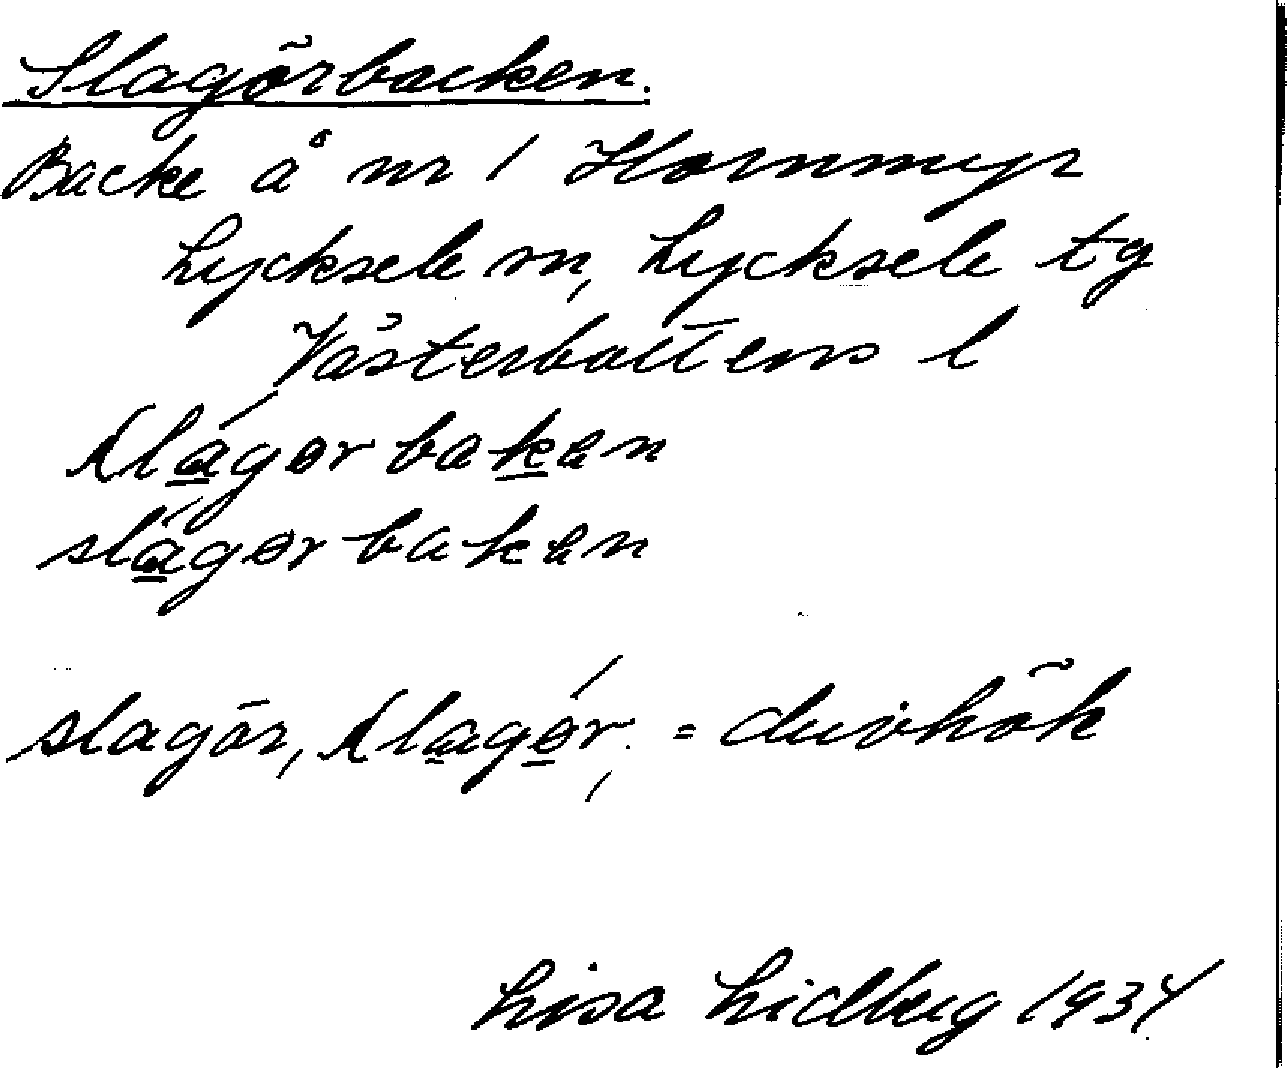 Slagörbacken.
Backe å nr 1 Hornmyr
Lycksele sn, Lycksele tg
Västerbottens l
slágør baken
slágør baken
slagör, slagǿr, = duvhök
Lisa Lidberg 1934